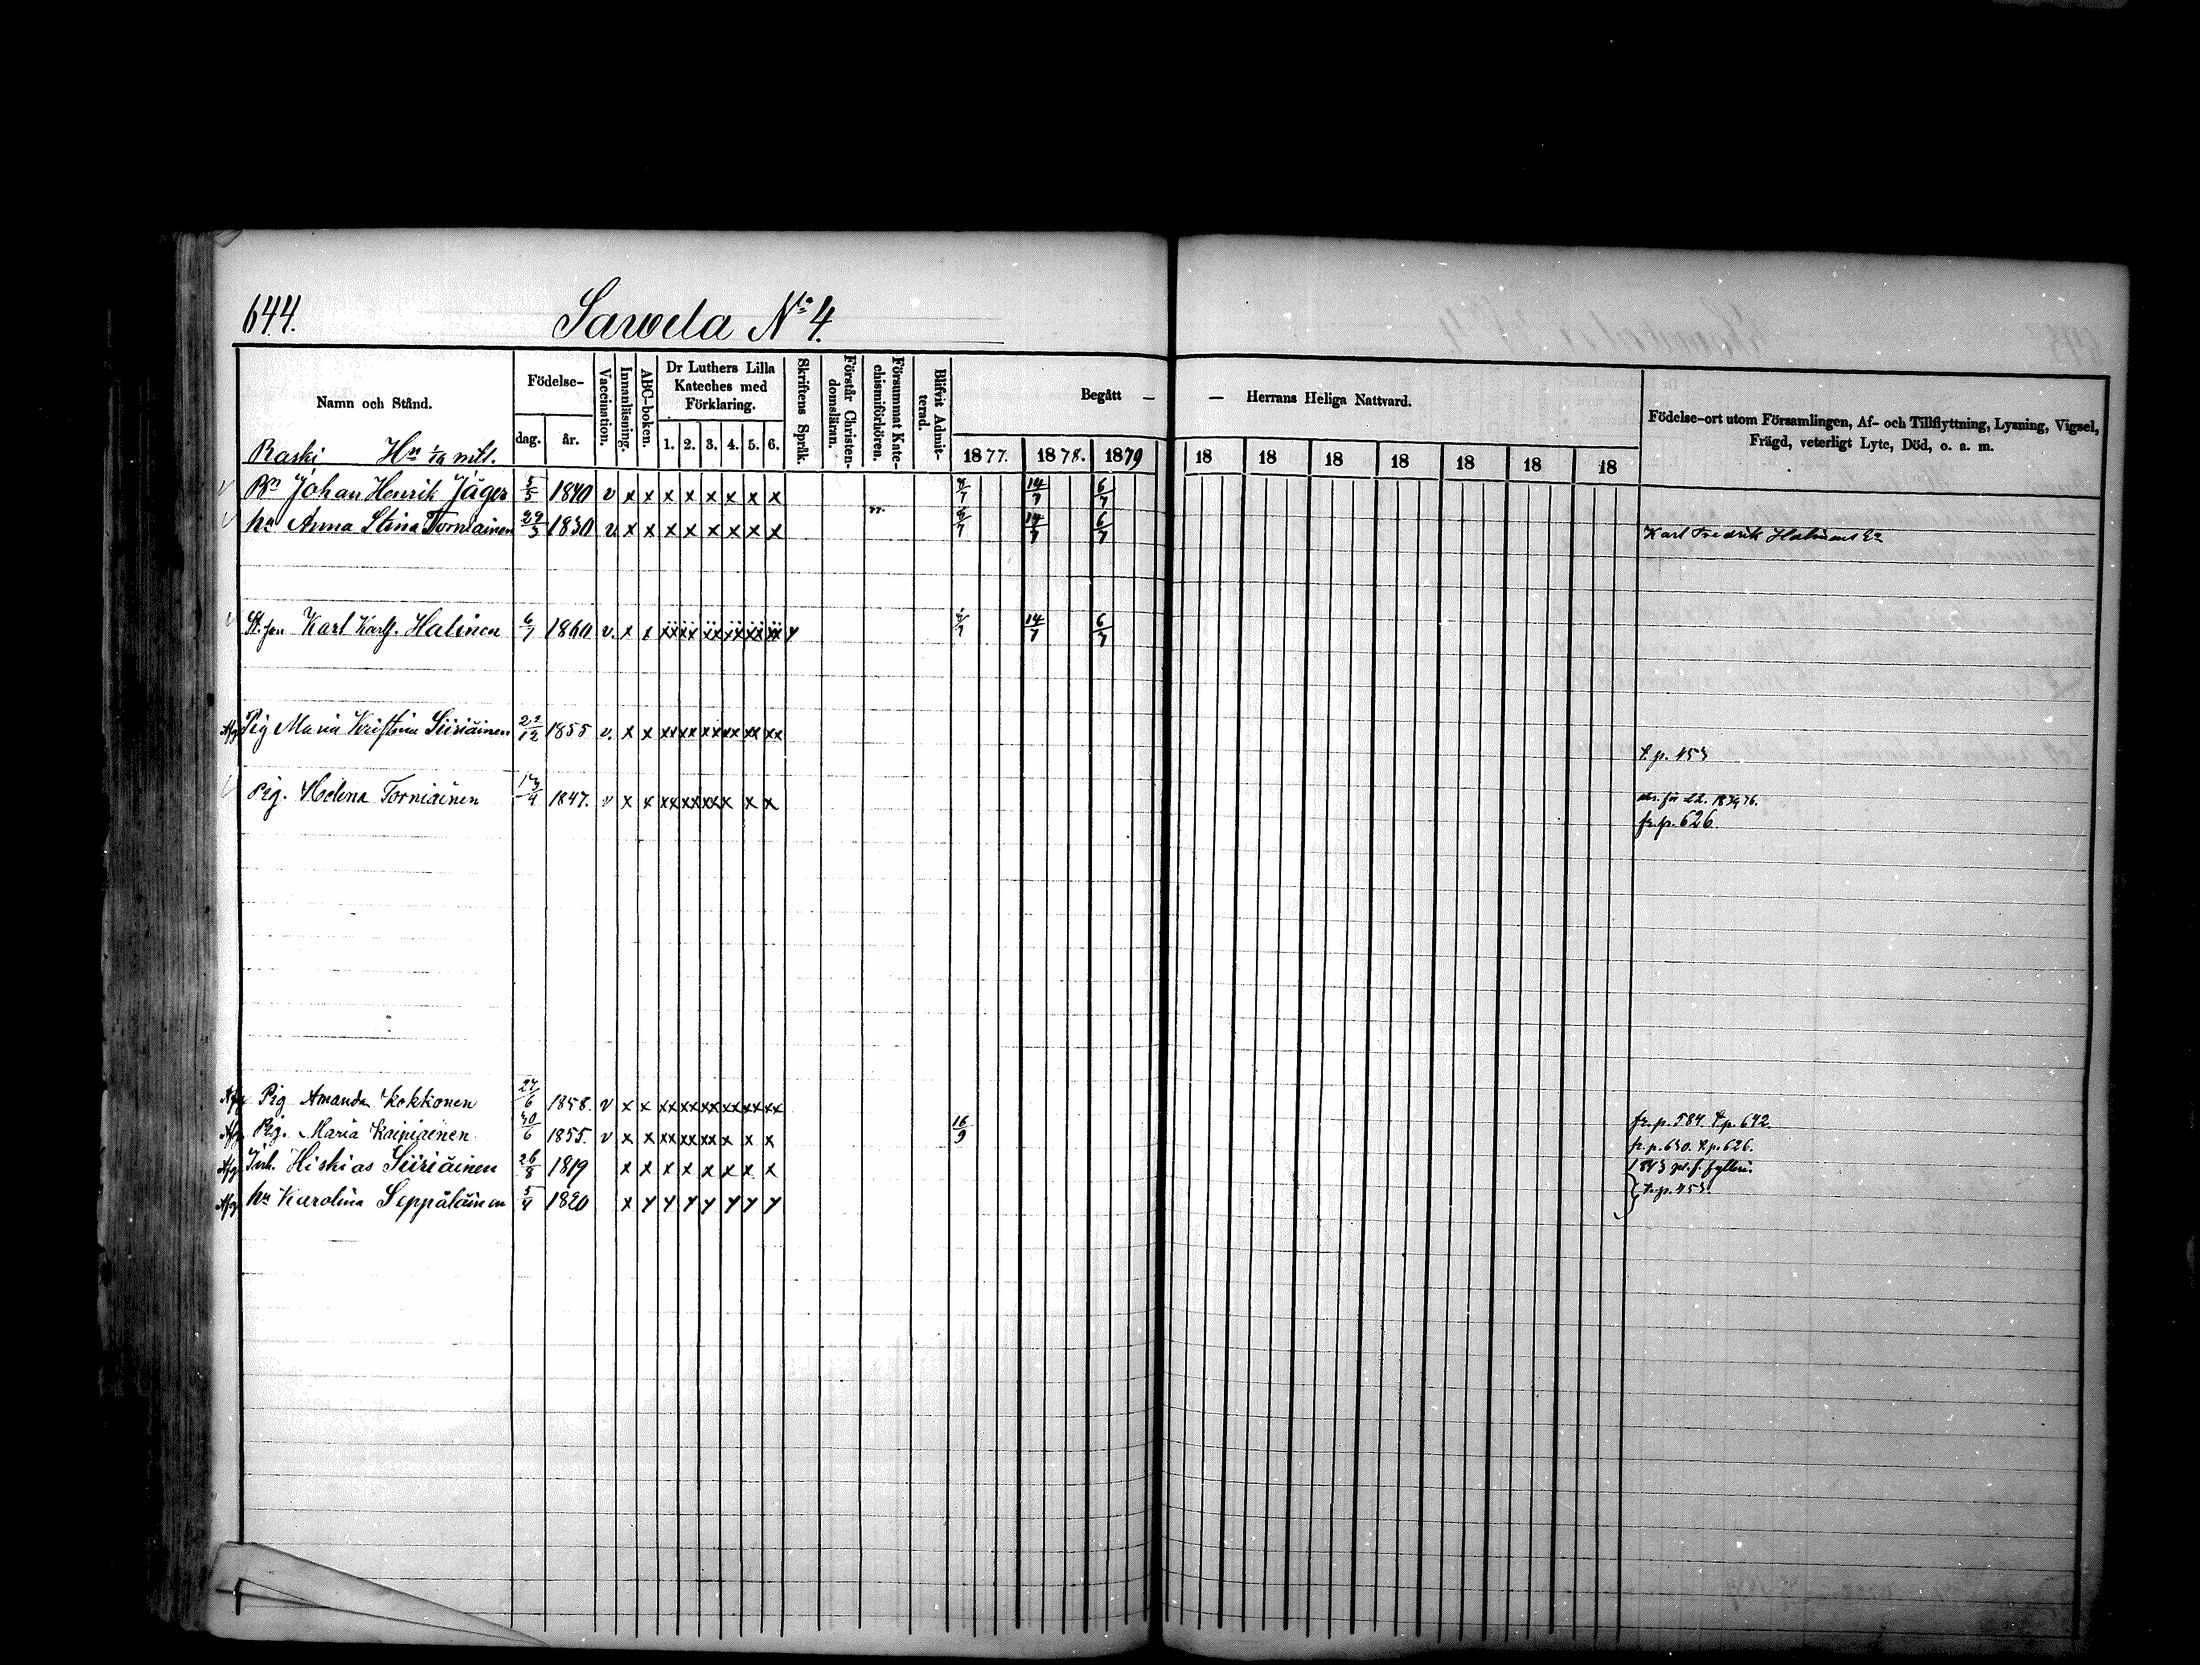 644.
Sawela No 4.
Namn och Stånd.
Födelse-
dag.
år.
Vaccination.
Innanläsning.
ABC-boken.
Dr Luthers Lilla
Kateches med
Förklaring.
1. 2. 3. 4. 5. 6.
Skriftens Språk.
Förstår Christen-
domsläran.
Försummat Kate-
chismiförhören.
Blifvit Admit-
terad.
Begått — — Herrans Heliga Nattvard.
1877. 1878. 1879 18 18 18 18 18 18 18
Födelse-ort utom Församlingen, Af- och Tillflyttning, Lysning, Vigsel,
Frägd, veterligt Lyte, Död, o. a. m.
Raski Hn mtl.
Bn Johan Henrik Jäger 5/5 1840 v x x x x x x x x 14/7 6/7
hu Anna Stina Torniainen 29/3 1830 v. x x x x x x x x 14/7 6/7 Karl Fredrik Halinens
Karl Karls. Halinen 6/7 1860 v. x x 14/7 6/7
Afg Pig Maria Kristina Siiriäinen 22/12 1855 v. x x xx xx xx xx xx xx
t. p. 453
Pig. Helena Torniainen 1847. v x x xx xx xx x x x
fr. p. 626.
Afg Pig Amanda Kokkonen 27/6 1858. v x x xx xx xx xx xx xx fr. p. 584. t. p. 642
Afg. Pig. Maria Kaipiainen 30/6 1855. v x x xx xx xx x x x 16/9 fr. p. 630. t. p. 626.
Afg Inh. Hiskias Siiriäinen 26/8 1819 x x x x x x x x 1843
Afg hu Karolina Seppäläinen 5/4 1820 x y y y y y y y t. p. 453.